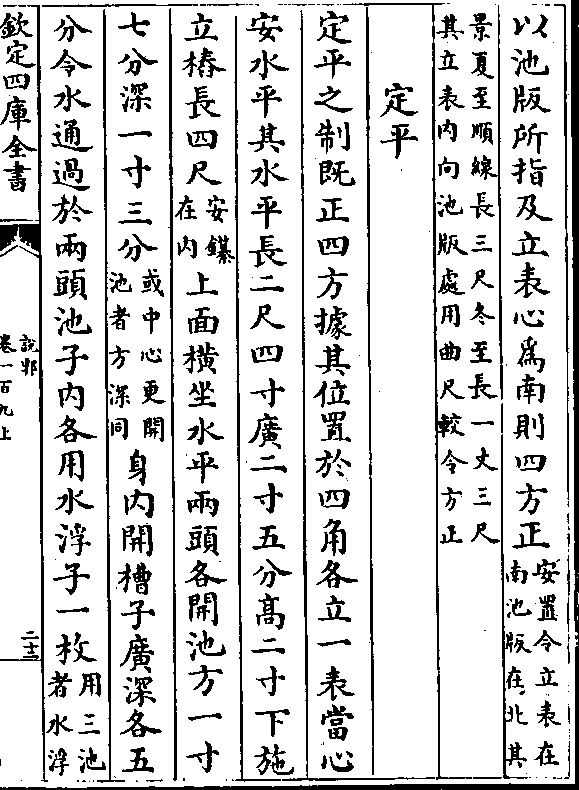 以池版所指及立表心爲南則四方正安置令立表在南池版在北其
景夏至順線長三尺冬至長一丈三尺其立表内向池版處用曲尺較令方正
定平
定平之制既正四方據其位置於四角各立一表當心
安水平其水平長二尺四寸廣二寸五分高二寸下施
立樁長四尺安鑻在内上面橫坐水平兩頭各開池方一寸
七分深一寸三分或中心更開池者方深同身内開槽子廣深各五
分令水通過於兩頭池子内各用水浮子一枚用三池者水浮
欽定四庫全書
説郛
卷一百九上
二十三